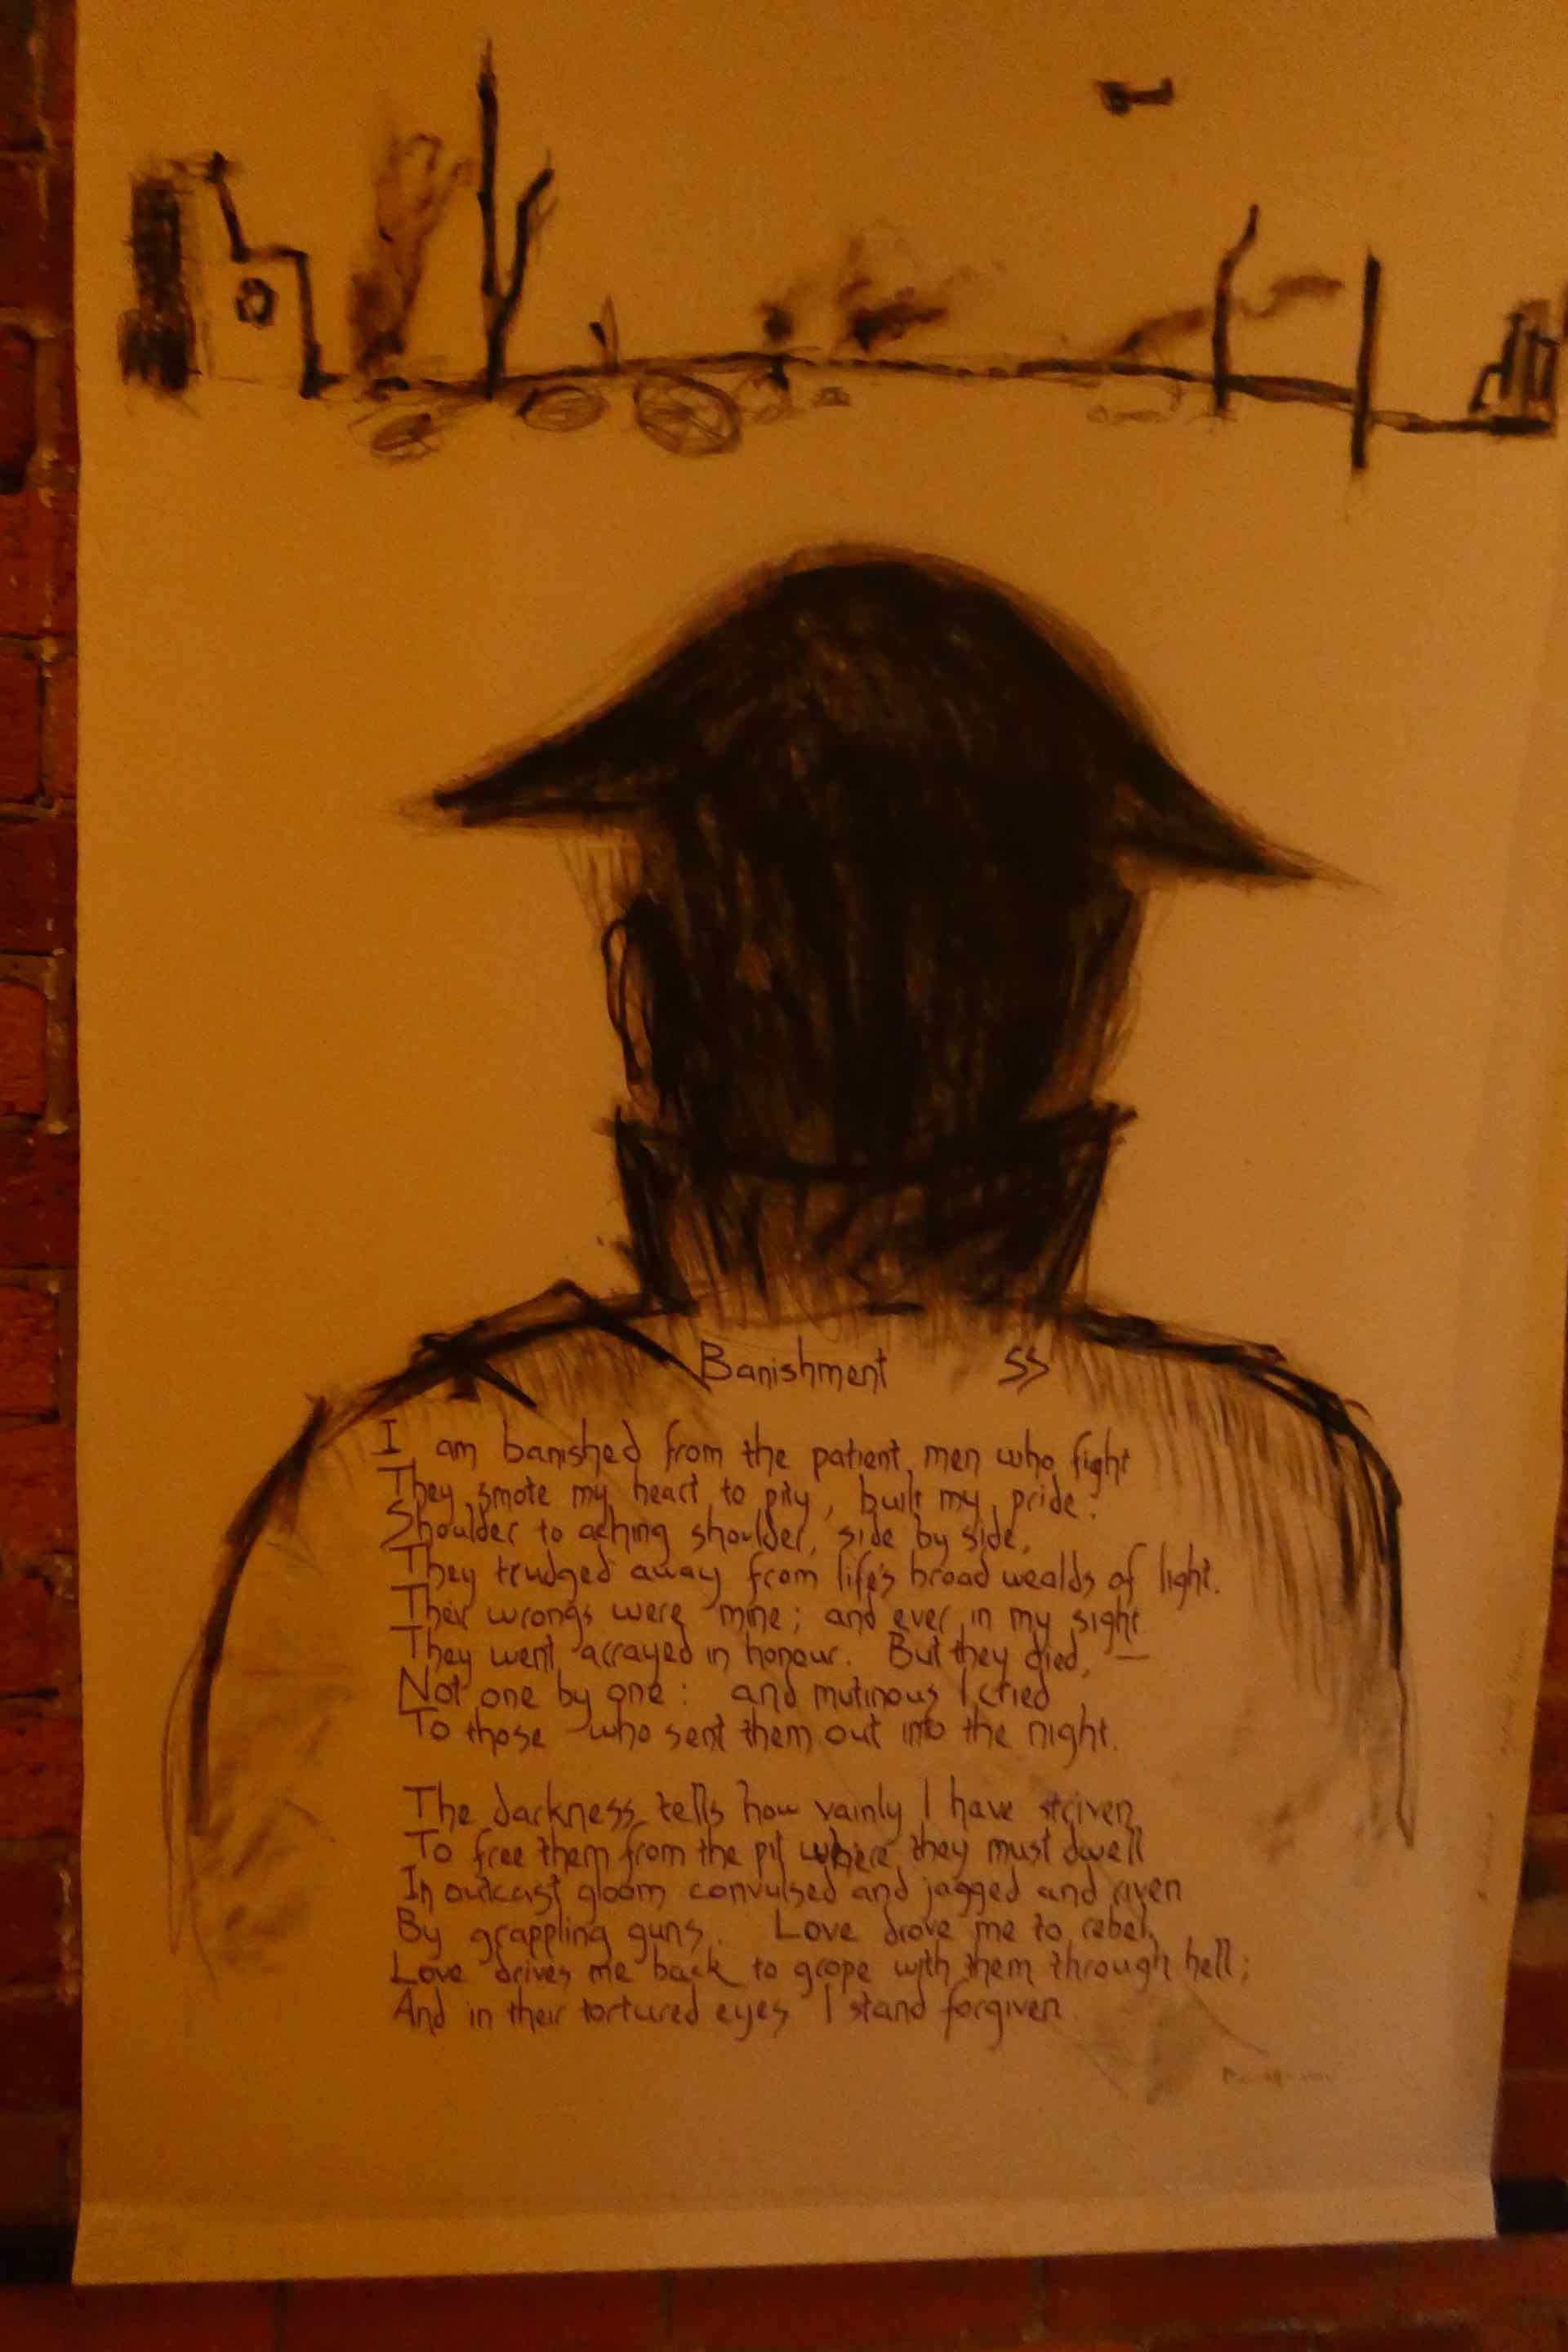 Banishment SS
I am banished from the patient men who fight
They smote my heart to pity, built my pride.
Shoulder to aching shoulder, side by side,
They trudged away from life's broad wealds of light.
Their wrongs were mine; and ever in my sight
They went arrayed in honour. But they died, —
Not one by one: and mutinous I cried
To those who sent them out into the night.
The darkness tells how vainly I have striven
To free them from the pit where they must dwell
In outcast gloom convulsed and jagged and riven
By grappling guns. Love drove me to rebel.
Love drives me back to grope with them through hell;
And in their tortured eyes I stand forgiven